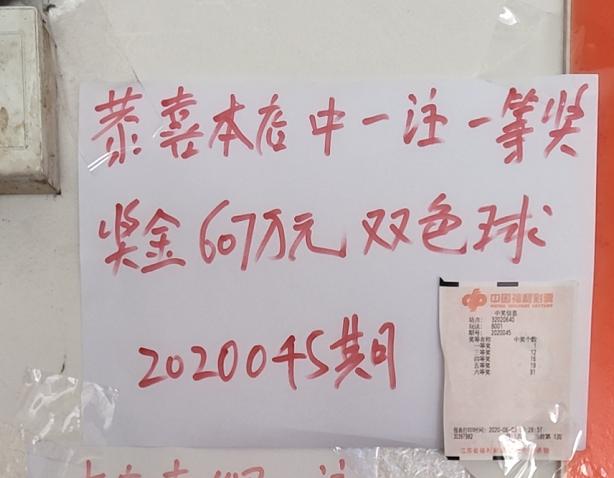 恭喜本店中一注一等奖
奖金607万元 双色球
2020045期
中国福利彩票
中奖信息
站点: 32020640
玩法: B001
期号: 2020045
奖等名称 中奖个数
一等奖 1
三等奖 12
四等奖 16
五等奖 19
六等奖 81
报表打印时间: 2020-06-